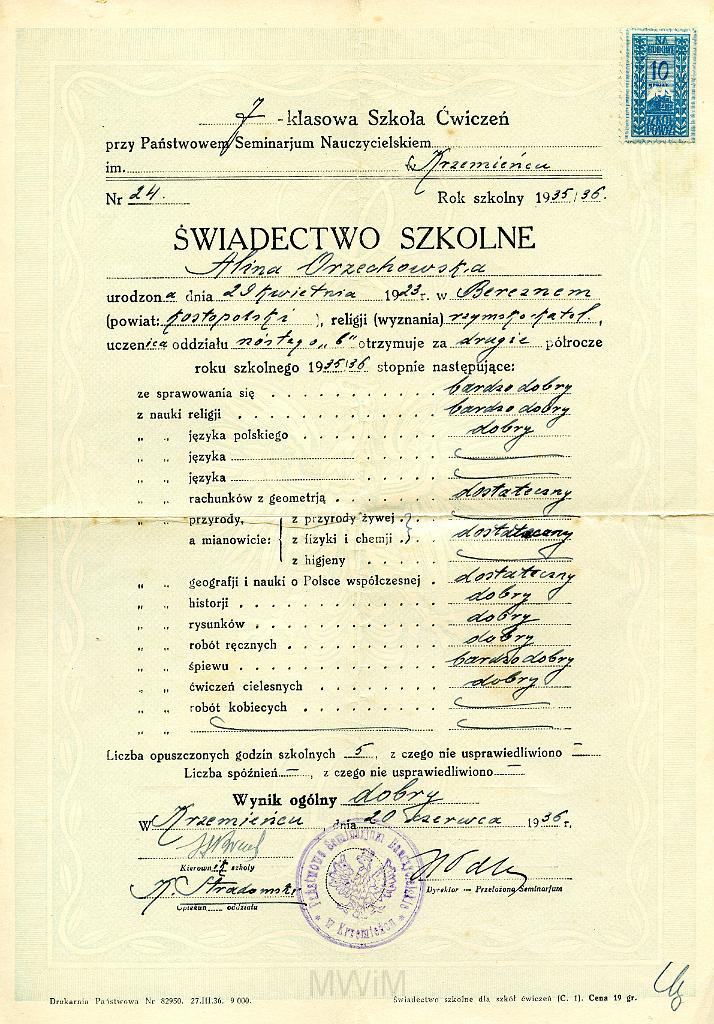 NA BUDOWĘ
10
GROSZY
SZKÓŁ
7 -klasowa Szkoła Ćwiczeń
przy Państwowem Seminarjum Nauczycielskiem
im. w Krzemieńcu
Nr 24. Rok szkolny 1935/36.
ŚWIADECTWO SZKOLNE
Alina Orzechowska
urodzona dnia 29 kwietnia 1923 r. w Bereznem
(powiat: kostopolski ), religii (wyznania) rzymsko-katol. ,
uczenica oddziału szóstego „b" otrzymuje za drugie półrocze
roku szkolnego 1935/36 stopnie następujące:
ze sprawowania się . . . bardzo dobry
z nauki religji . . . bardzo dobry
„ „ języka polskiego . . . dobry
„ „ języka
„ „ języka
„ „ rachunków z geometrją . . . dostateczny
„ „ przyrody, z przyrody żywej .
a mianowicie: z fizyki i chemji . dostateczny
z higjeny . . .
„ „ geografji i nauki o Polsce współczesnej . dostateczny
„ „ historji . . . dobry
„ „ rysunków . . . dobry
„ „ robót ręcznych . . . dobry
„ „ śpiewu . . . bardzo dobry
„ „ ćwiczeń cielesnych . . . dobry
„ „ robót kobiecych . . .
„ „
Liczba opuszczonych godzin szkolnych 5 , z czego nie usprawiedliwiono —
Liczba spóźnień — , z czego nie usprawiedliwiono —
Wynik ogólny dobry
W Krzemieńcu , dnia 20 czerwca 1936 r.
Kierownik szkoły
K. Stradomski
Opiekun oddziału
Dyrektor — Przełożona Seminarjum
Państwowe Seminarjum Nauczycielskie
w Krzemieńcu
MWiM
Drukarnia Państwowa Nr 82950. 27.III.36. 9 000.
Świadectwo szkolne dla szkół ćwiczeń (C. 1). Cena 19 gr.